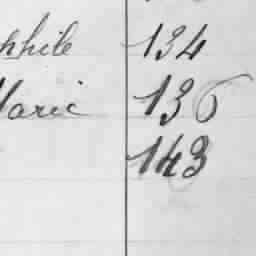 phile 134
Marie 136
143